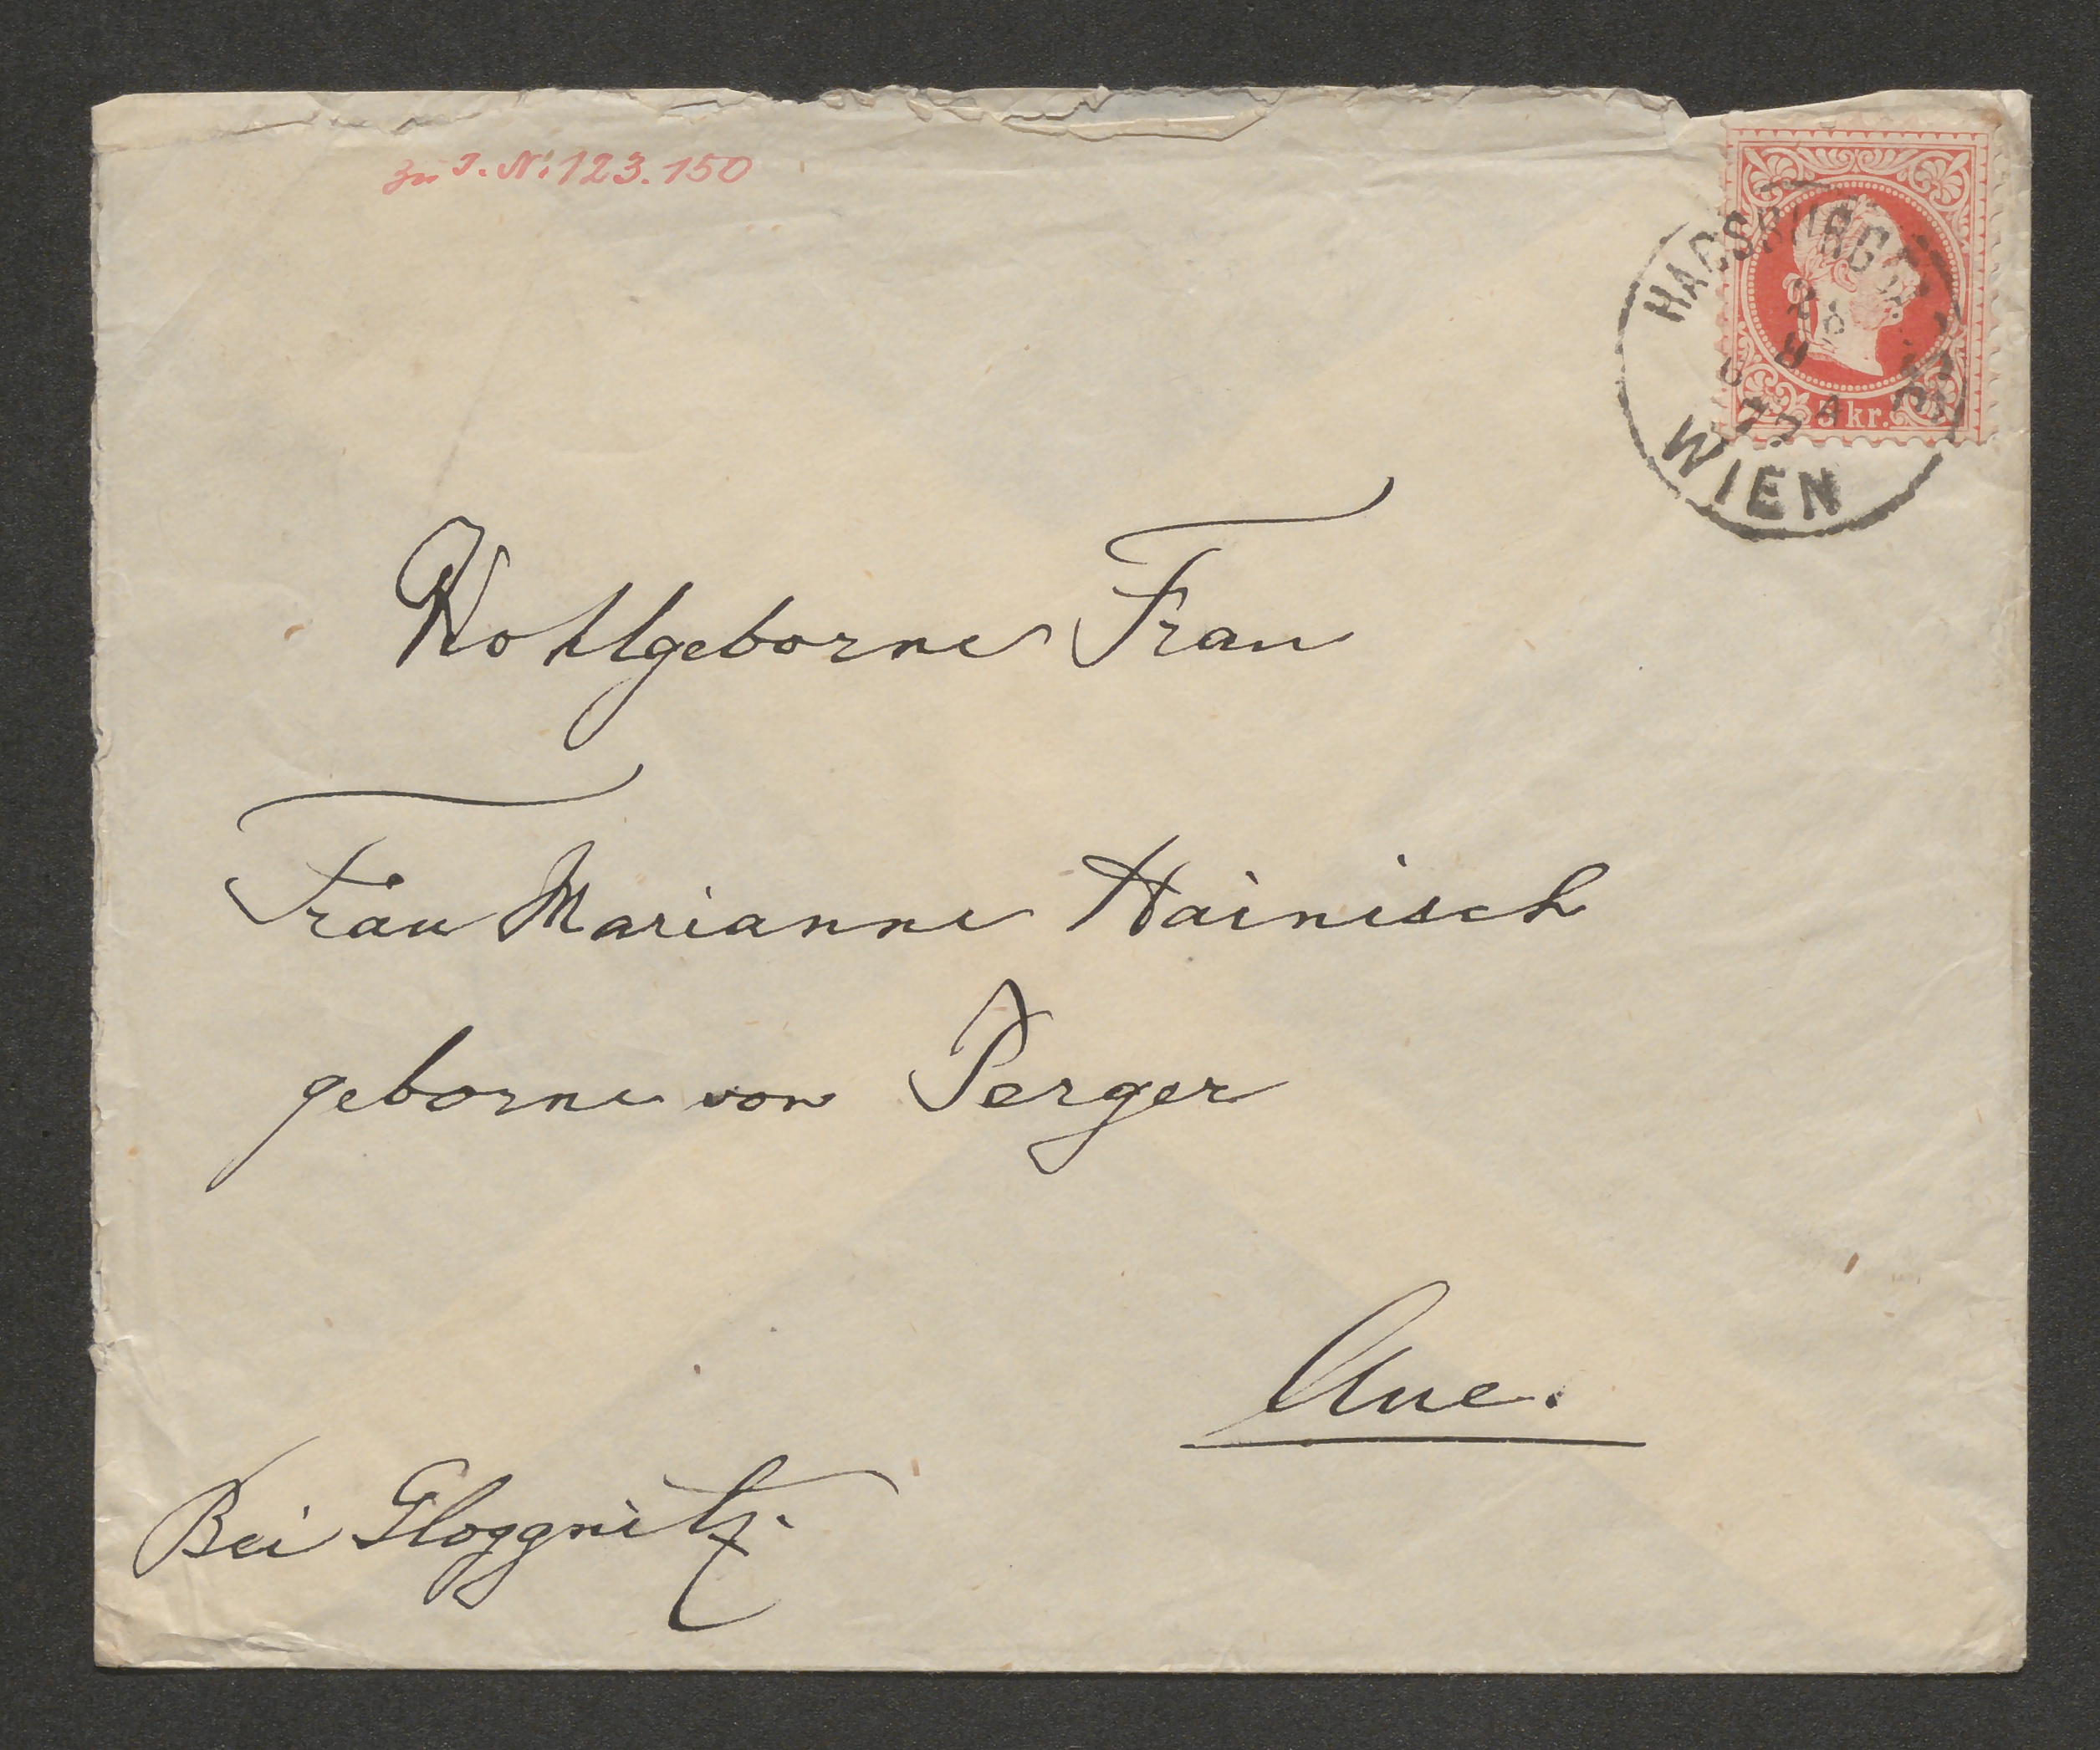 zu I. N. 123.150
HABSBURGG
WIEN
5 kr.
Wohlgeborne Frau
Frau Marianne Hainisch
geborne von Perger
Aue.
Bei Gloggnitz.